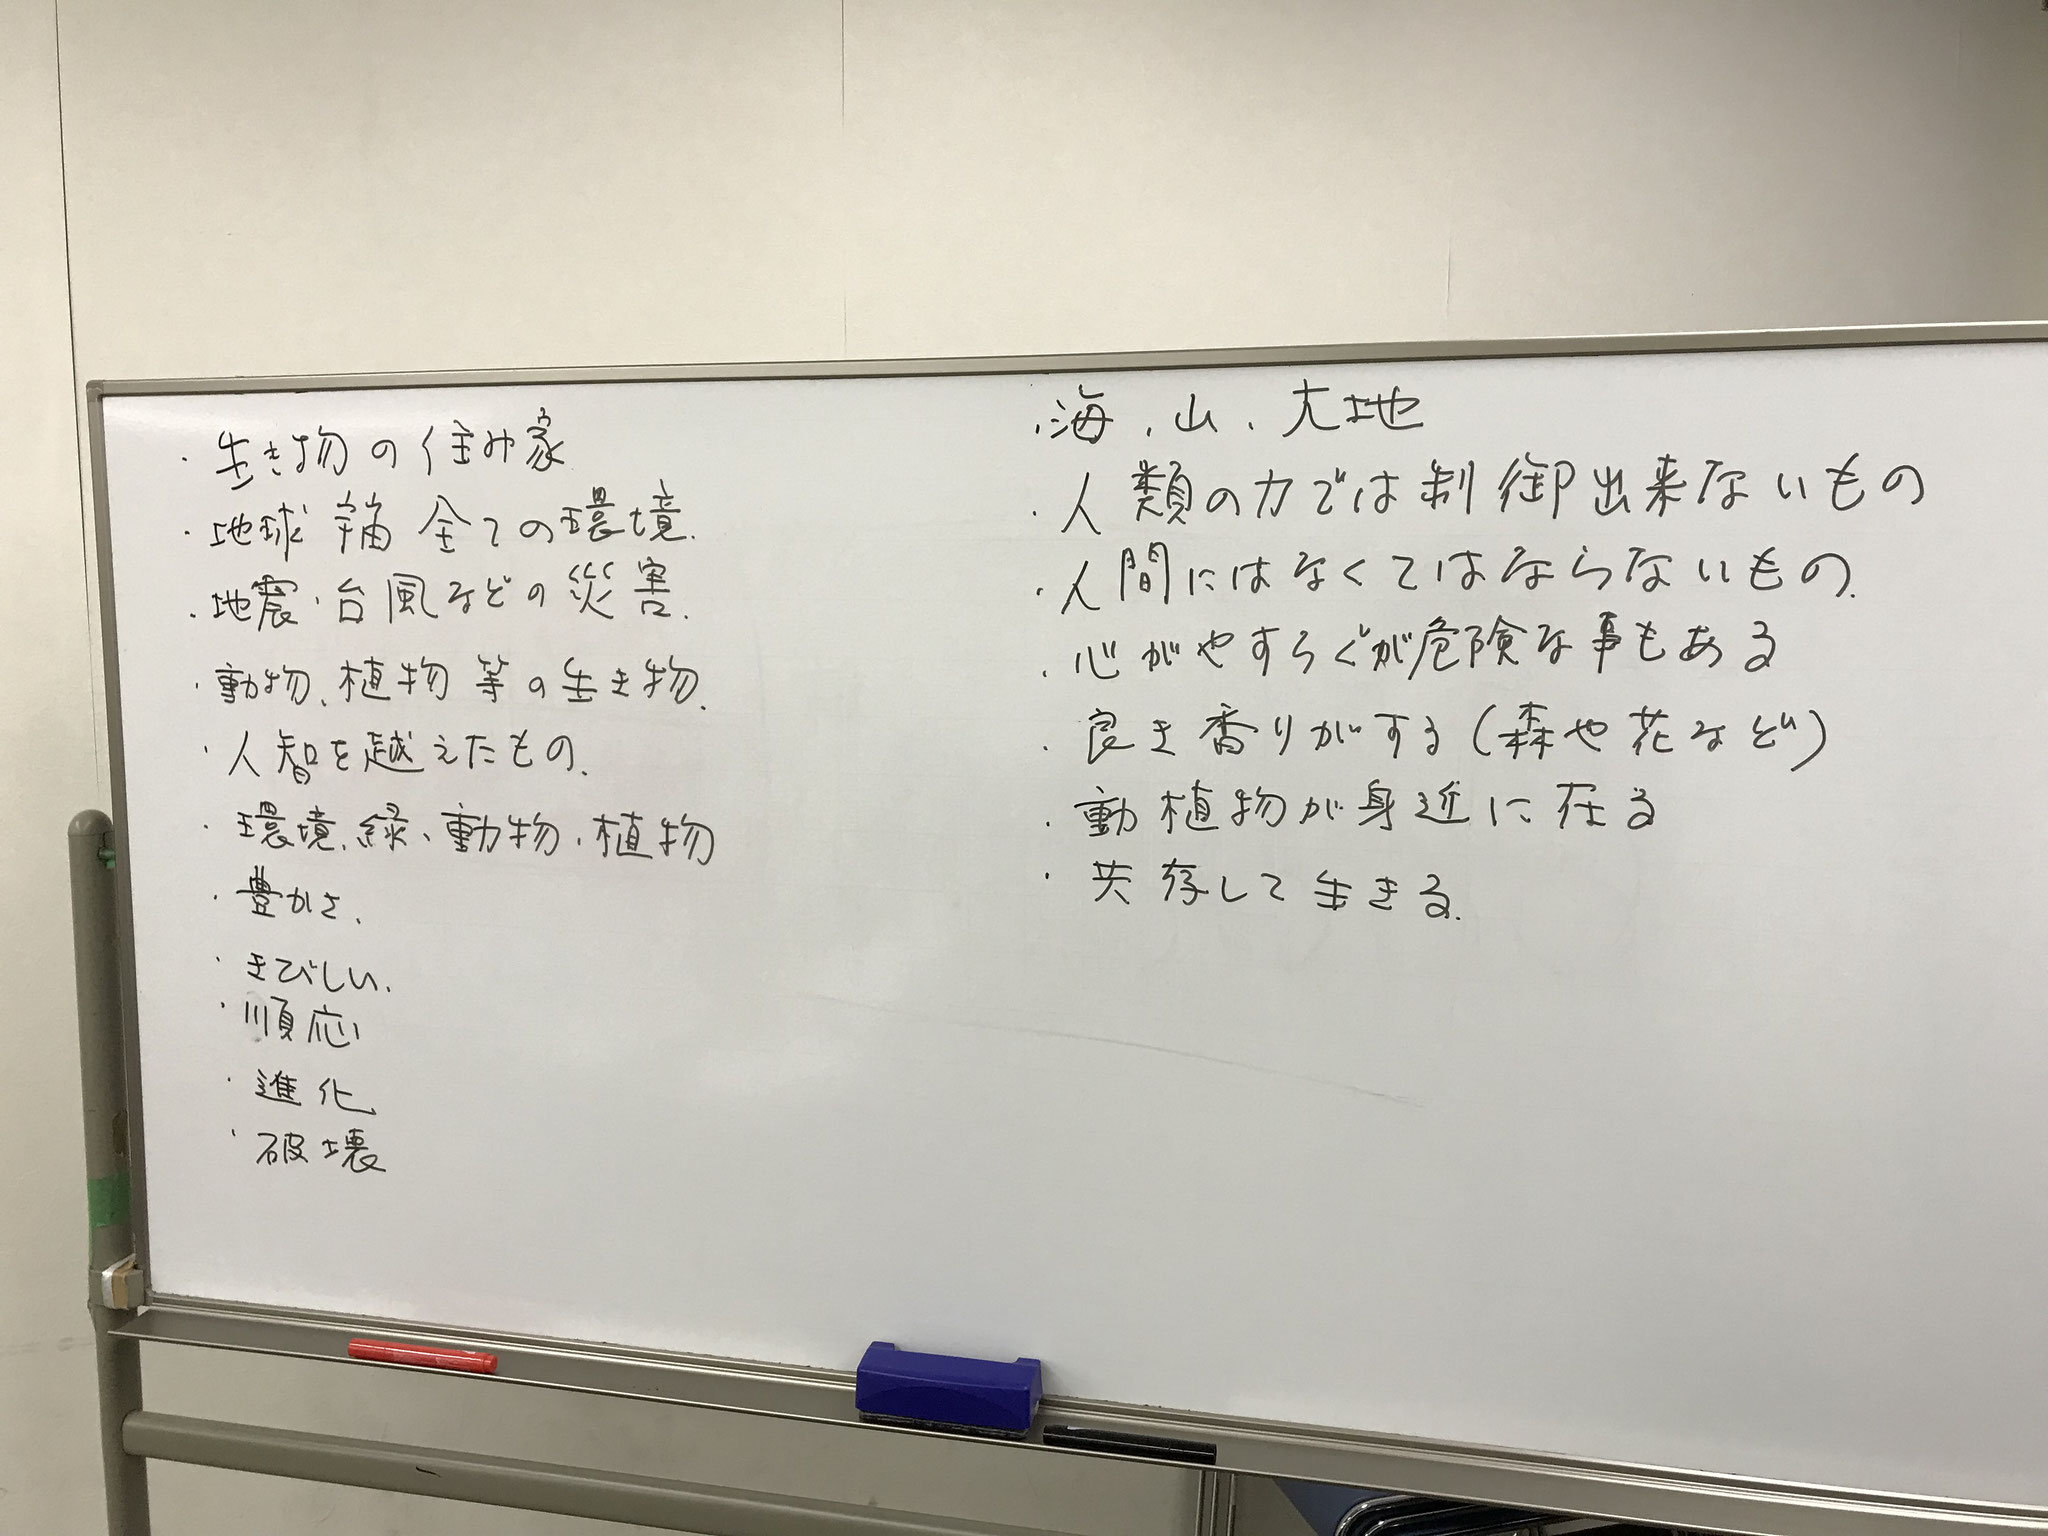 ・生き物の住み家
・地球 宇宙 全ての環境.
・地震・台風などの災害.
・動物、植物等の生き物.
・人智を越えたもの.
・環境、緑、動物、植物
・豊かさ.
・きびしい.
・順応
・進化
・破壊
・海、山、大地
・人類の力では制御出来ないもの
・人間にはなくてはならないもの.
・心がやすらぐが危険な事もある
・良き香りがする(森や花など)
・動植物が身近に在る
・共存して生きる.